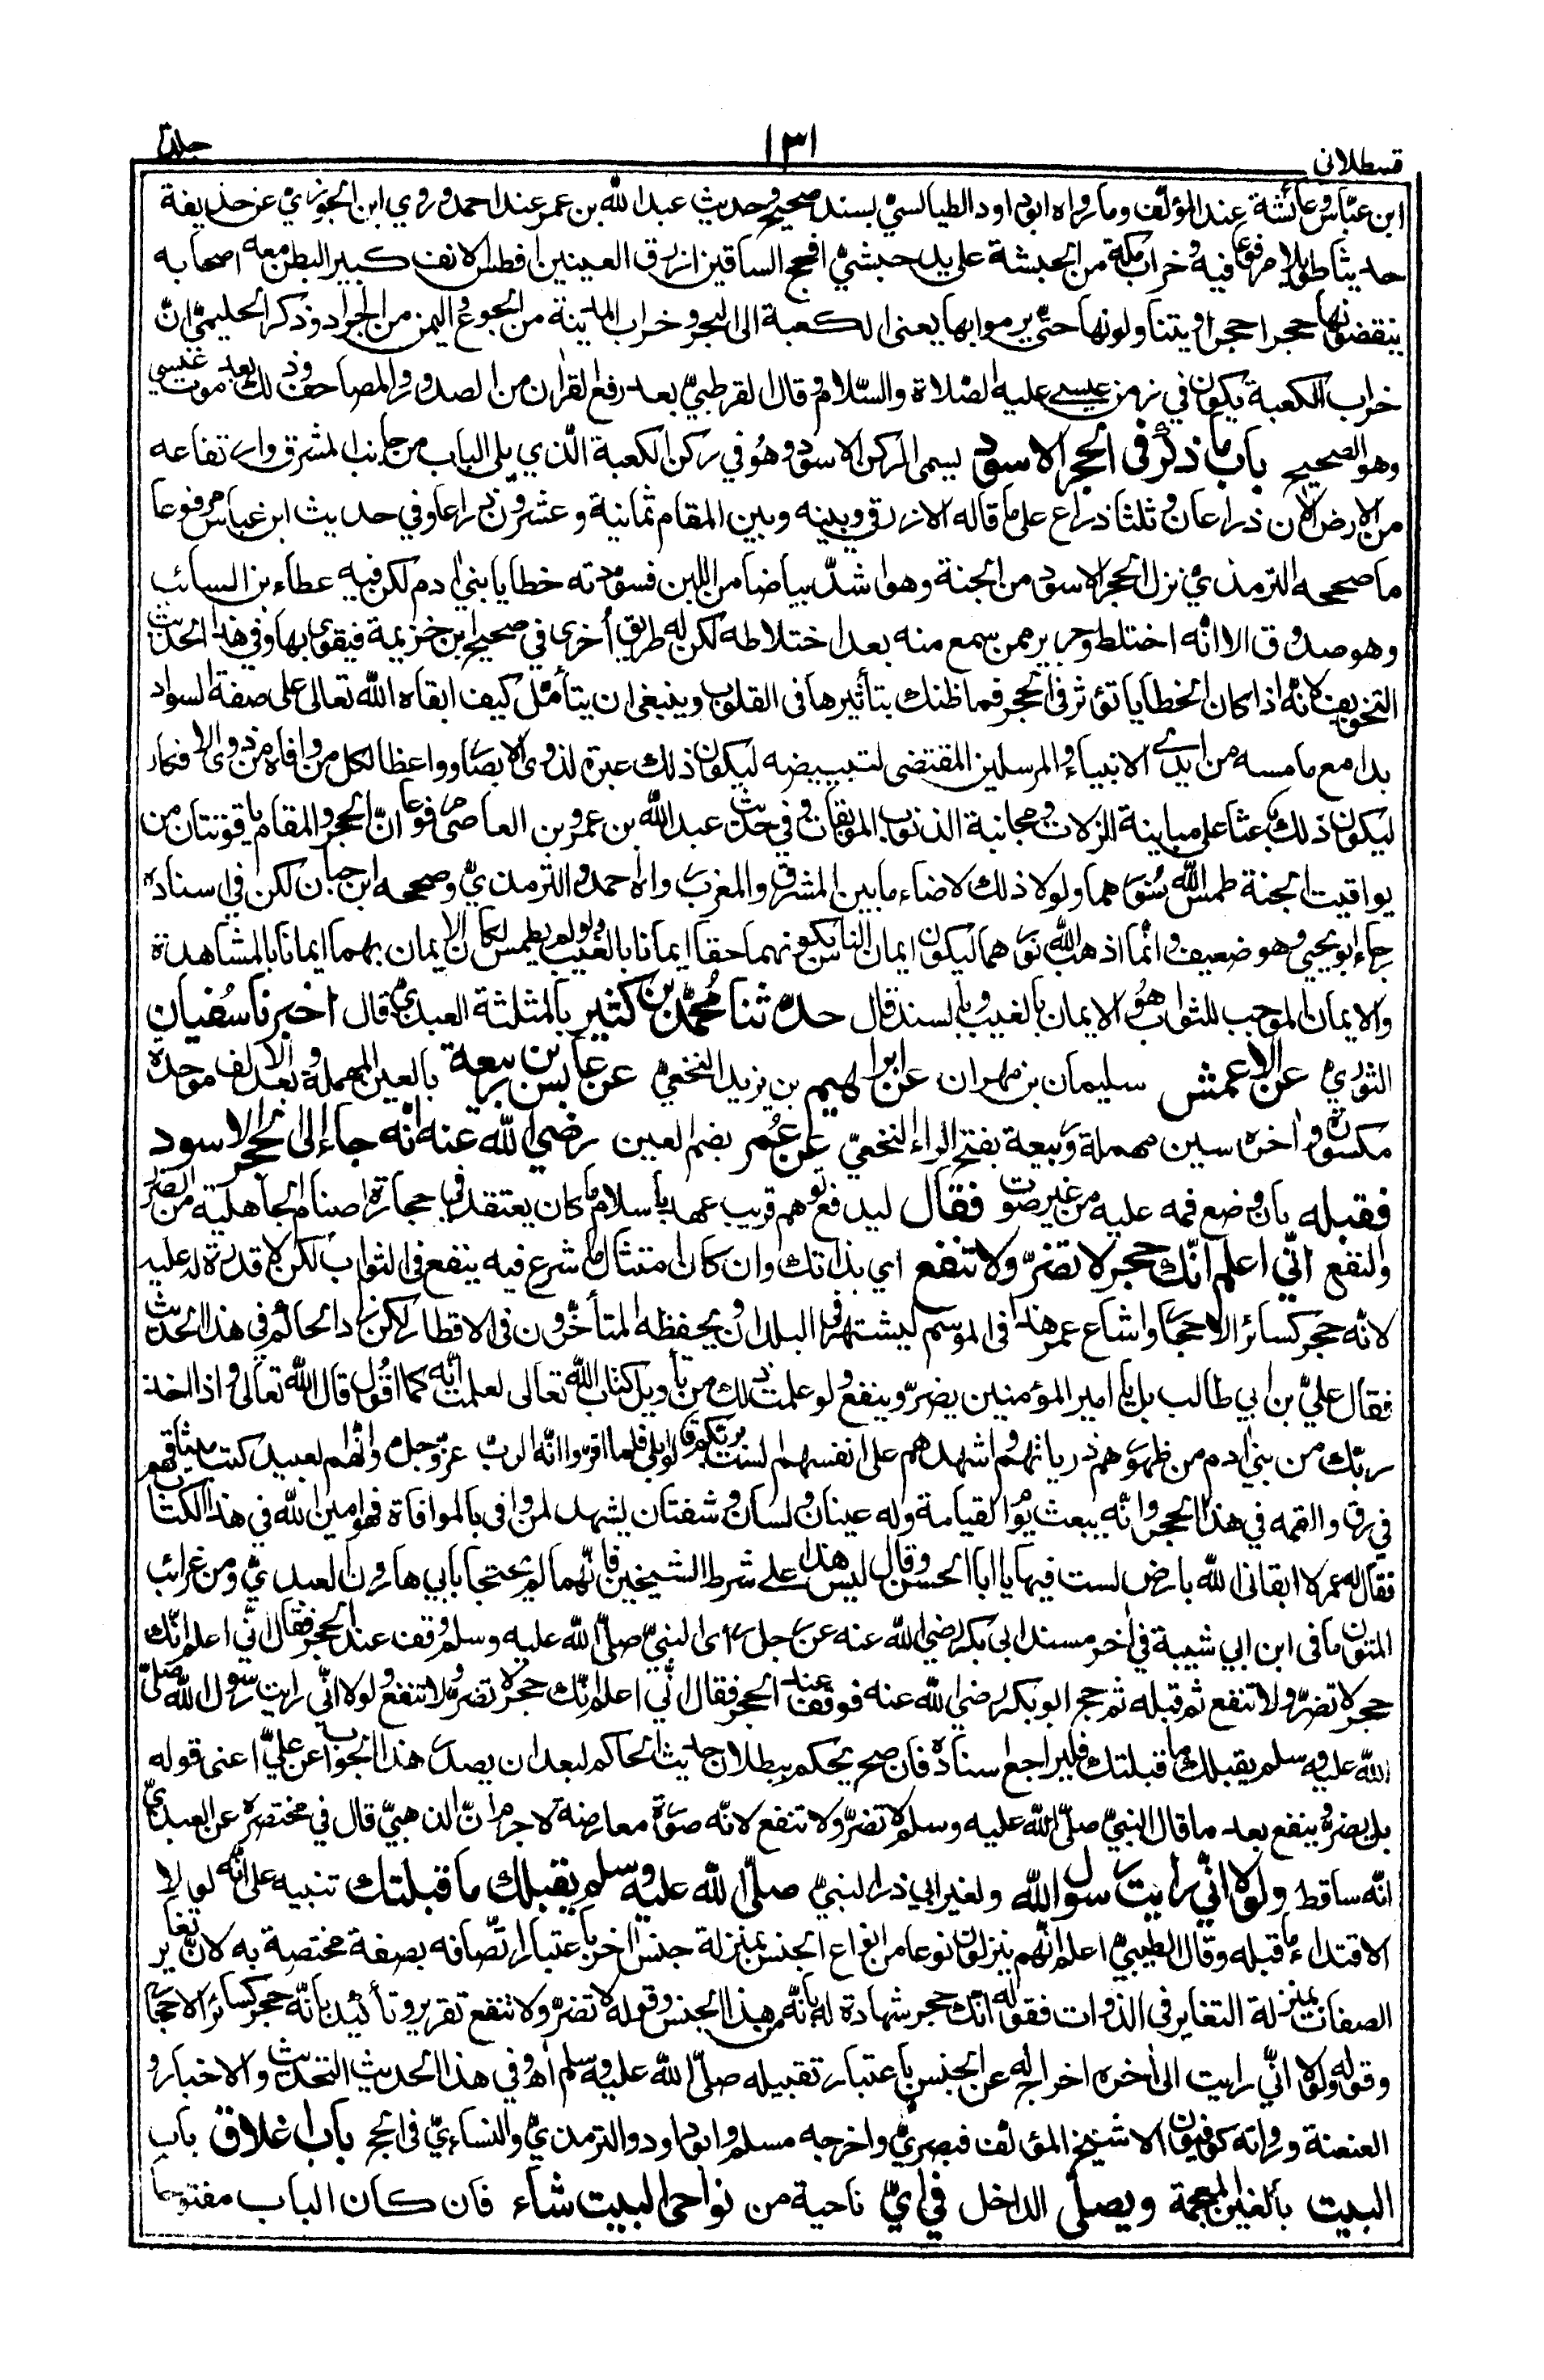 قسطلانى
١٣١
جلد٣
ابن عبّاس وعائشة عند المؤلّف وما رواه ابو داود الطيالسيّ بسند صحيح وحديث عبد الله بن عمر عند احمد وروي ابن الجوزيّ عن حذيفة
حديثا طويلا مرفوعا فيه وخراب مكة من الحبشة على يد حبشيّ افحج الساقين ازرق العينين افطس الانف كبير البطن معه اصحابه
ينقضونها حجرا حجرا ويتناولونها حتّى يرموا بها يعنى الكعبة الى البحر وخراب المدينة من الجوع واليمن من الجراد وذكر الحليميّ انّ
خراب الكعبة يكون في زمن عيسى عليه الصّلاة والسّلام وقال القرطبيّ بعد رفع القرأن من الصدور والمصاحف وذلك بعد موت عيسى
وهو الصحيح باب ما ذكر فى الحجر الاسود يسمى الركن الاسود وهُو في ركن الكعبة الّذي يلى الباب من جانب المشرق وارتفاعه
من الارض الأن ذراعان وثلثا ذراع على ما قاله الازرقى وبينه وبين المقام ثمانية وعشرون ذراعا وفي حديث ابن عباس مرفوعا
ما صححه الترمذيّ نزل الحجر الاسود من الجنة وهو اشدّ بياضا من اللبن فسوّدته خطايا بنى أدم لكن فيه عطاء بن السائب
وهو صدوق الا انّه اختلط وجرير ممن سمع منه بعد اختلاطه لكن له طريق أخرى في صحيح ابن خزيمة فيقوى بها وفي هذا الحديث
التخويف لانّه اذا كان الخطايا تؤثر فى الحجر فما ظنك بتأثيرها فى القلوب وينبغى ان يتأمّل كيف ابقاه الله تعالى على صفة السواد
بدا مع ما مسه من ايدى الانبياء والمرسلين المقتضى لتبييضه ليكون ذلك عبرة لذوى الابصار وواعظا لكل من وافاه من ذوى الافكار
ليكون ذلك باعثا على مباينة الزلات ومجانبة الذنوب الموبقات وفي حديث عبد الله بن عمرو بن العاص مرفوعا انّ الحجر والمقام ياقوتتان من
يواقيت الجنة طمس الله نُورهما ولولا ذلك لاضاء ما بين المشرق والمغرب رواه احمد والترمذيّ وصححه ابن حبان لكن في اسناده
رجاء ابو يحيى وهو ضعيف وانّما اذهب الله نورهما ليكون ايمان الناس بكونهما حقا ايمانا بالغيب ولو لم يطمس لكان الايمان بهما ايمانا بالمشاهدة
والايمان الموجب للثواب هُو الايمان بالغيب وبالسند قال حدّثنا مُحمّد بن كثير بالمثلثة العبدىّ قال اخبرنا سُفيان
الثوريّ عن الاعمش سليمان بن مهران عن ابراهيم بن يزيد النخعيّ عن عابس بن ربيعة بالعين المهملة وبعد الالف موحدة
مكسورة وأخره سين مهملة وربيعة بفتح الراء النخعيّ عن عُمر بضم العين رضي الله عنه انّه جاء إلى الحجر الاسود
فقبله بان وضع فمه عليه من غير صوت فقال ليدفع توهم قريب عهد باسلام ما كان يعتقد في حجارة اصنام الجاهلية من الضر
والنفع انّي اعلم انّك حجر لا تضرّ ولا تنفع اي بذاتك وان كان امتثال ما شرع فيه ينفع فى الثواب لكن لا قدرة له عليه
لانّه حجر كسائر الاحجار واشاع عمر هذا فى الموسم ليشتهر في البلدان ويحفظه المتأخّرون فى الاقطار لكن زاد الحاكم في هذا الحديث
فقال عليّ بن ابي طالب بل يا امير المؤمنين يضرّ وينفع ولو علمت ذلك من تأويل كتاب الله تعالى لعلمت انّه كما اقُول قال الله تعالى واذ اخذ
ربّك من بنى أدم من ظهورهم ذرياتهم واشهدهم على انفسهم الست بربكم قالوا بلى فلما اقرّوا انّه الربّ عزّ وجل وانّهم العبيد كتب ميثاقهم
في رق والقمه في هذا الحجر وانّه يبعث يوم القيامة وله عينان ولسان وشفتان يشهد لمن وافى بالموافاة فهو امين الله في هذا الكتاب
فقال له عمر لا ابقانى الله بارض لست فيها يا ابا الحسن وقال ليس هذا على شرط الشيخين فانّهما لم يحتجا بابي هارون العبديّ ومن غرائب
المتون ما فى ابن ابي شيبة في أخر مسند ابى بكر رضي الله عنه عن رجل رأى النبيّ صلّى الله عليه وسلم وقف عند الحجر فقال انّي اعلم انّك
حجر لا تضرّ ولا تنفع ثم قبله ثم حج ابو بكر رضي الله عنه فوقف عند الحجر فقال انّي اعلم انّك حجر لا تضرّ ولا تنفع ولولا انّي رايت رسول الله صلّى
الله عليه وسلم يقبلك ما قبلتك فليراجع اسناده فان صح يحكم ببطلان حديث الحاكم لبعد ان يصدر هذا الجواب عن عليّ اعنى قوله
بل يضرّ وينفع بعد ما قال النبيّ صلّى الله عليه وسلم لا تضرّ ولا تنفع لانّه صورة معارضة لا جرم انّ الذهبيّ قال في مختصره عن العبديّ
انّه ساقط ولولا انّي رايت رسول الله ولغير ابي ذر النبيّ صلّى الله عليه وسلم يقبلك ما قبلتك تنبيه على انّه لولا
الاقتداء ما قبله وقال الطيبيّ اعلم انّهم ينزلون نوعا من انواع الجنس بمنزلة جنس أخر باعتبار اتّصافه بصفة مختصة به لانّ تغاير
الصفات بمنزلة التغاير فى الذوات فقوله انّك حجر شهادة له بانّه من هذا الجنس وقوله لا تضرّ ولا تنفع تقرير وتأكيد بانّه حجر كسائر الاحجار
وقوله ولولا انّي رايت الى أخره اخراج له عن الجنس باعتبار تقبيله صلّى الله عليه وسلم اه وفي هذا الحديث التحديث والاخبار و
العنعنة ورواته كوفيون الا شيخ المؤلف فبصريّ واخرجه مسلم وابو داود والترمذيّ والنساءيّ فى الحج باب اغلاق باب
البيت بالغين المعجمة ويصلّى الداخل في ايّ ناحية من نواحى البيت شاء فان كان الباب مفتوحا